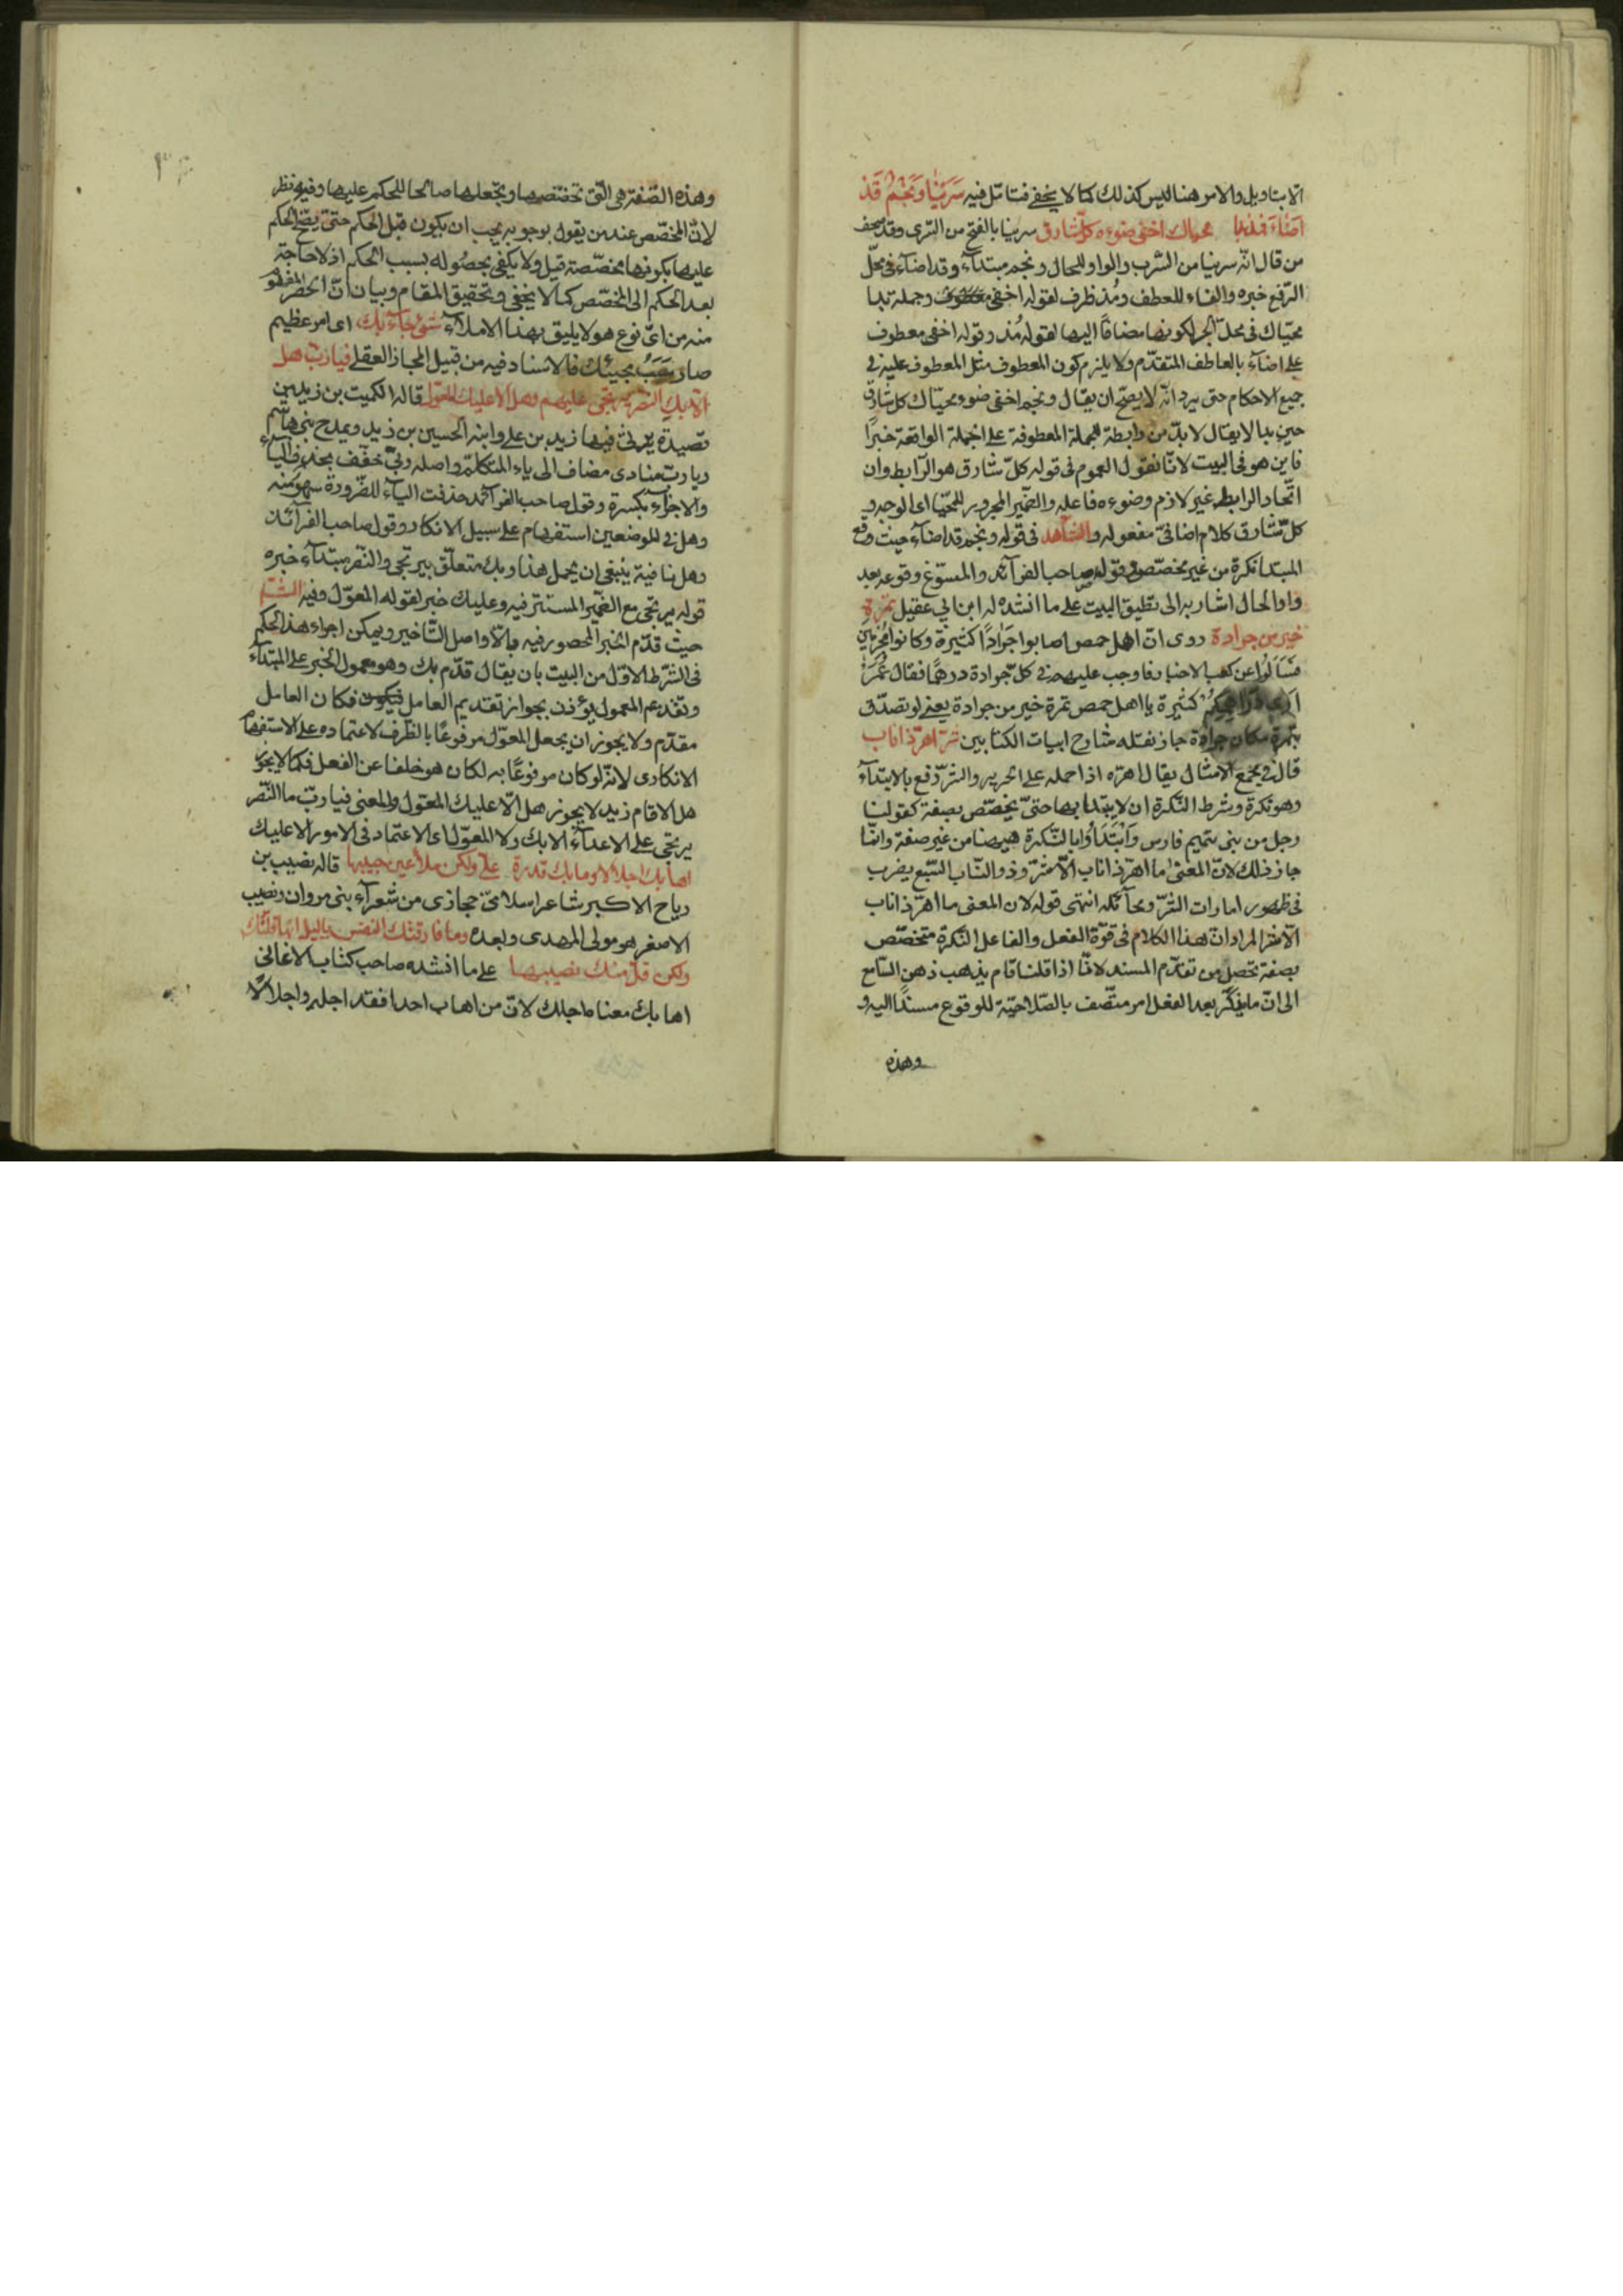 الا بتاويل والامر هنا ليس كذلك كما لا يخفى فتامل فيه سَرَيْنَا وَنَجْمٌ قَدْ
اَضَاءَ فَمُذْ بَدَا محياك اخفى ضوءه كلّ شارق سرينا بالفتح من السّرى وقد صحف
من قال انّه سربنا من الشرب والواو للحال ونجم مبتدأ وقد اضآء فى محلّ
الرّفع خبره والفاء للعطف ومُذ ظرف لقوله اخفى وجملة بدا
محيّاك فى محلّ الجر لكونها مضافًا اليها لقوله مُذ وقوله اخفى معطوف
على اضآء بالعاطف المتقدّم ولا يلزم كون المعطوف مثل المعطوف عليه فى
جميع الاحكام حتى يرد انّه لا يصحّ ان يقال ونجم اخفى ضوء محيّاك كل شارق
حين بدا لا يقال لا بدّ من رابطة للجملة المعطوفة على الجملة الواقعة خبرًا
فاين هو فى البيت لانّا نقول العموم فى قوله كلّ شارق هو الرّابط وان
اتّحاد الرابط غير لازم وضوءه فاعله والضّمير المجرور للمحيّا اى الوجه و
كلّ شارق كلام اضافىّ مفعوله والشّاهد فى قوله ونجم قد اضآء حيث وقع
المبتدا نكرة من غير مخصّص وقوله صاحب الفرآئد والمسوّغ وقوعه بعد
واو الحال اشار به الى تطبيق البيت على ما انشده له ابن ابى عقيل تمرة
خير من جرادة روى انّ اهل حمص اصابوا جَرَادًا كثيرة وكانوا محرمين
فَسَألُوا عن كعب الاحبار فاوجب عليهم فى كلّ جرادة درهمًا فقال عُمَرُ
اَرَى دَرَاهِمَكُمْ كثيرة يا اهل حمص تمرة خير من جرادة يعنى لو تصدّق
بتمرة مكان جرادة جاز نقله شارح ابيات الكتابين شرّ اهرّ ذا ناب
قال فى مجمع الامثال يقال اهرّه اذا حمله على الهرير والشرّ رفع بالابتدآء
وهو نكرة وشرط النّكرة ان لا يبتدا بها حتىّ يخصّص بصفة كقولنا
رجل من بنى تميم فارس وَابْتَدَأُوا بالنّكرة هيهنا من غير صفة وانّما
جاز ذلك لانّ المعنى ما اهرّ ذا ناب الاّ شرّ وذو النّاب السّبع يضرب
فى ظهور امارات الشرّ ومخآئله انتهى قوله لان المعنى ما اهرّ ذا ناب
الاّ شر المراد انّ هذا الكلام فى قوّة الفعل والفاعل النّكرة متخصّص
بصفة تحصل من تقدّم المسند لانّا اذا قلنا قام يذهب ذهن السّامع
الى انّ ما يذكّر بعد الفعل امر متّصف بالصّلاحيّة للوقوع مسندًا اليه و
وهذه
وهذه الصّفة هى الّتى تخصّصها ويجعلها صالحا للحكم عليها وفيه نظر
لانّ المخصّص عند من يقول بوجوبه يجب ان يكون قبل الحكم حتىّ يصّح الحكم
عليها بكونها مخصّصة قبل ولا يكفى بحصُوله بسبب الحكم اذ لا حاجة
بعد الحكم الى المخصّص كما لا يخفى وتحقيق المقام وبيان انّ الحصر
منه من اىّ نوع هو لا يليق بهذا الاملآء شئ جآء بك اى امر عظيم
صار سَبَبُ مجيئك فالاسناد فيه من قبيل المجاز العقلى فيا ربّ هل
الاّ بك النّصر يرتجى عليهم وهل الا عليك المعوّل قاله الكميت بن زيد من
قصيدة يرثى فيها زيد بن على وابنه الحسين بن زيد ويمدح بنى هاشم
ويا ربّ منادى مضاف الى ياء المتكلّم واصله ربىّ خفّف بحذف اليآء
والاجزآء بكسرة وقول صاحب الفرآئد حذفت اليآء للضّرورة سهو منه
وهل فى الموضعين استفهام على سبيل الانكار وقول صاحب الفرآئد
وهل نافية ينبغى ان يحمل هذا وبك متعلّق بيرتجى والنّصر مبتدآء خبره
قوله يرتجى مع الضّمير المستتر فيه وعليك خبر لقوله المعوّل وفيه الشّاهد
حيث قدّم الخبر المحصور فيه بالاّ واصل التّاخير ويمكن اجراء هذا الحكم
فى الشّرط الاوّل من البيت بان يقال قدّم بك وهو معمول الخبر على المبتدآء
وتقديم المعمول يؤذن بجواز تقديم العامل فكان العامل
مقدّم ولا يجوز ان يجعل المعوّل مرفوعًا بالظّرف لاعتماده على الاستفهام
الانكارى لانّه لو كان مرفوعًا به لكان هو خلفا عن الفعل فكما لا يجوز
هل الا قام زيد لا يجوز هل الاّ عليك المعوّل والمعنى فيا ربّ ما النّصر
يرتجى على الاعدآء الا بك ولا المعوّل اى الاعتماد فى الامور الا عليك
اهابك اجلالا وما بك قدرة علىّ ولكن ملأ عين حبيبها قاله نصيب بن
رباح الاكبر شاعر اسلامىّ حجازى من شعرآء بنى مروان ونصيب
الاصغر هو مولى المهدى وبعده وما فارقتك النفس يا ليل انّها قلتك
ولكن قلّ منك نصيبها على ما انشده صاحب كتاب الاغانى
اهابك معناه اجلك لانّ من اهاب احدا فقد اجله واجلالًا